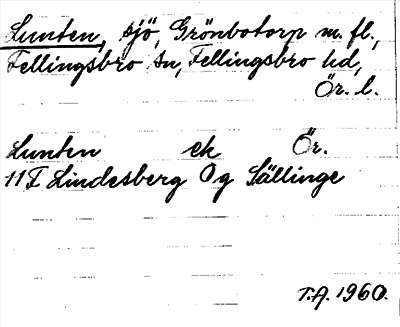 Lunten, sjö, Grönbotorp m. fl.,
Fellingsbro sn, Fellingsbro hd,
Ör. l.
Lunten ek Ör.
11F Lindesberg Og Sällinge
T.A. 1960.